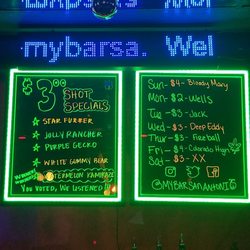 mybarsa. Wel
$3⁰⁰
SHOT
SPECIALS
★ STAR FU**ER
★ JOLLY RANCHER
★ PURPLE GECKO
★ WHITE GUMMY BEAR
WATERMELON KAMIKAZE
YOU VOTED, WE LISTENED!!!
Sun- $4- Bloody Mary
Mon- $2- Wells
Tue- $3- Jack
Wed- $3- Deep Eddy
Thur- $3- Fireball
Fri- $4- Colorado High
Sat- $3- XX
@MYBARSANANTONIO